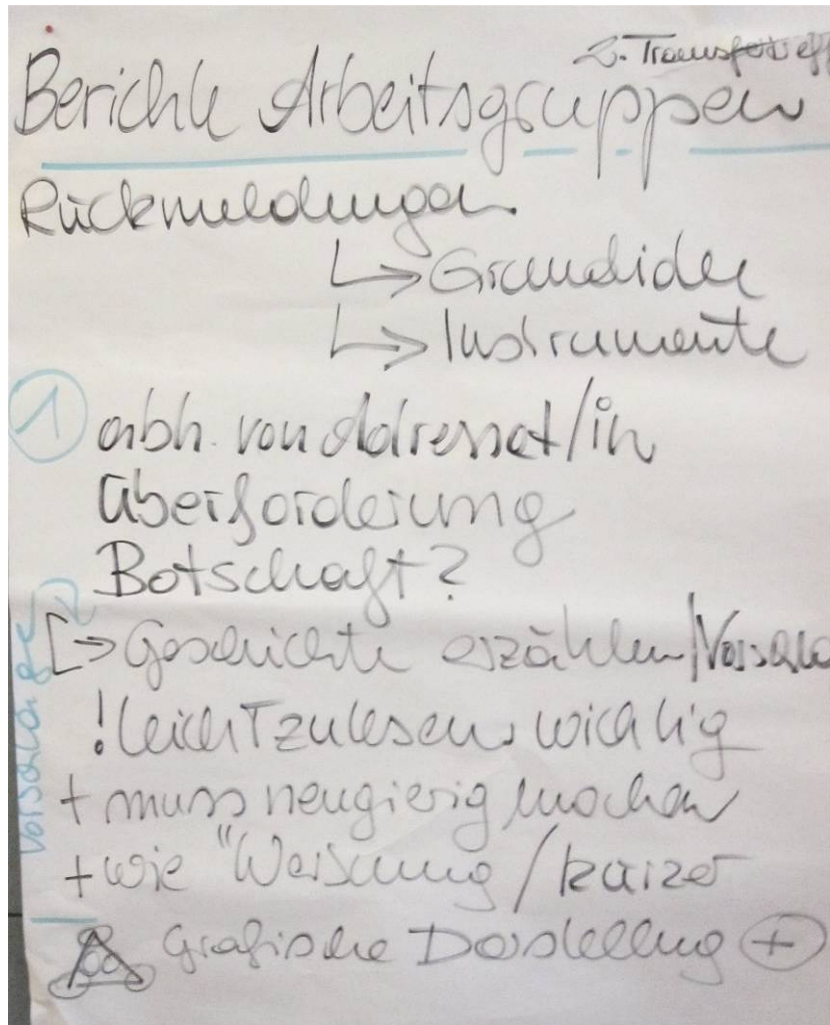 2. Transfertreff
Berichte Arbeitsgruppen
Rückmeldungen
↳ Grundidee
↳ Instrumente
1 abh. von Adressat/in
Überforderung
Botschaft?
Vorschläge
[→ Geschichte erzählen/Vorschlä
! leicht zu lesen, wichtig
+ muss neugierig machen
+ wie "Weisung/kürzer
Grafische Darstellung +